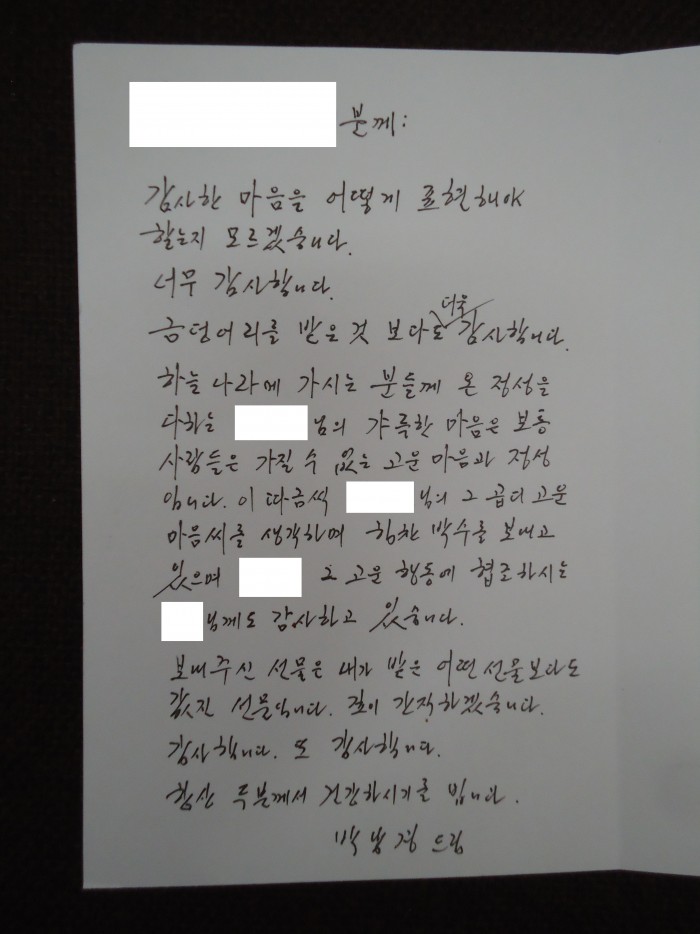 분께:
감사한 마음을 어떻게 표현해야
할는지 모르겠습니다.
너무 감사합니다.
금덩어리를 받은 것 보다도 더욱 감사합니다.
하늘나라에 가시는 분들께 온 정성을
다하는 님의 갸륵한 마음은 보통
사람들은 가질 수 없는 고운 마음과 정성
입니다. 이따금씩 님의 그 곱디 고운
마음씨를 생각하며 힘찬 박수를 보내고
있으며 그 고운 행동에 협조하시는
님께도 감사하고 있습니다.
보내주신 선물은 내가 받은 어떤 선물보다도
값진 선물입니다. 깊이 간직하겠습니다.
감사합니다. 또 감사합니다.
항상 두분께서 건강하시기를 빕니다.
박 드림